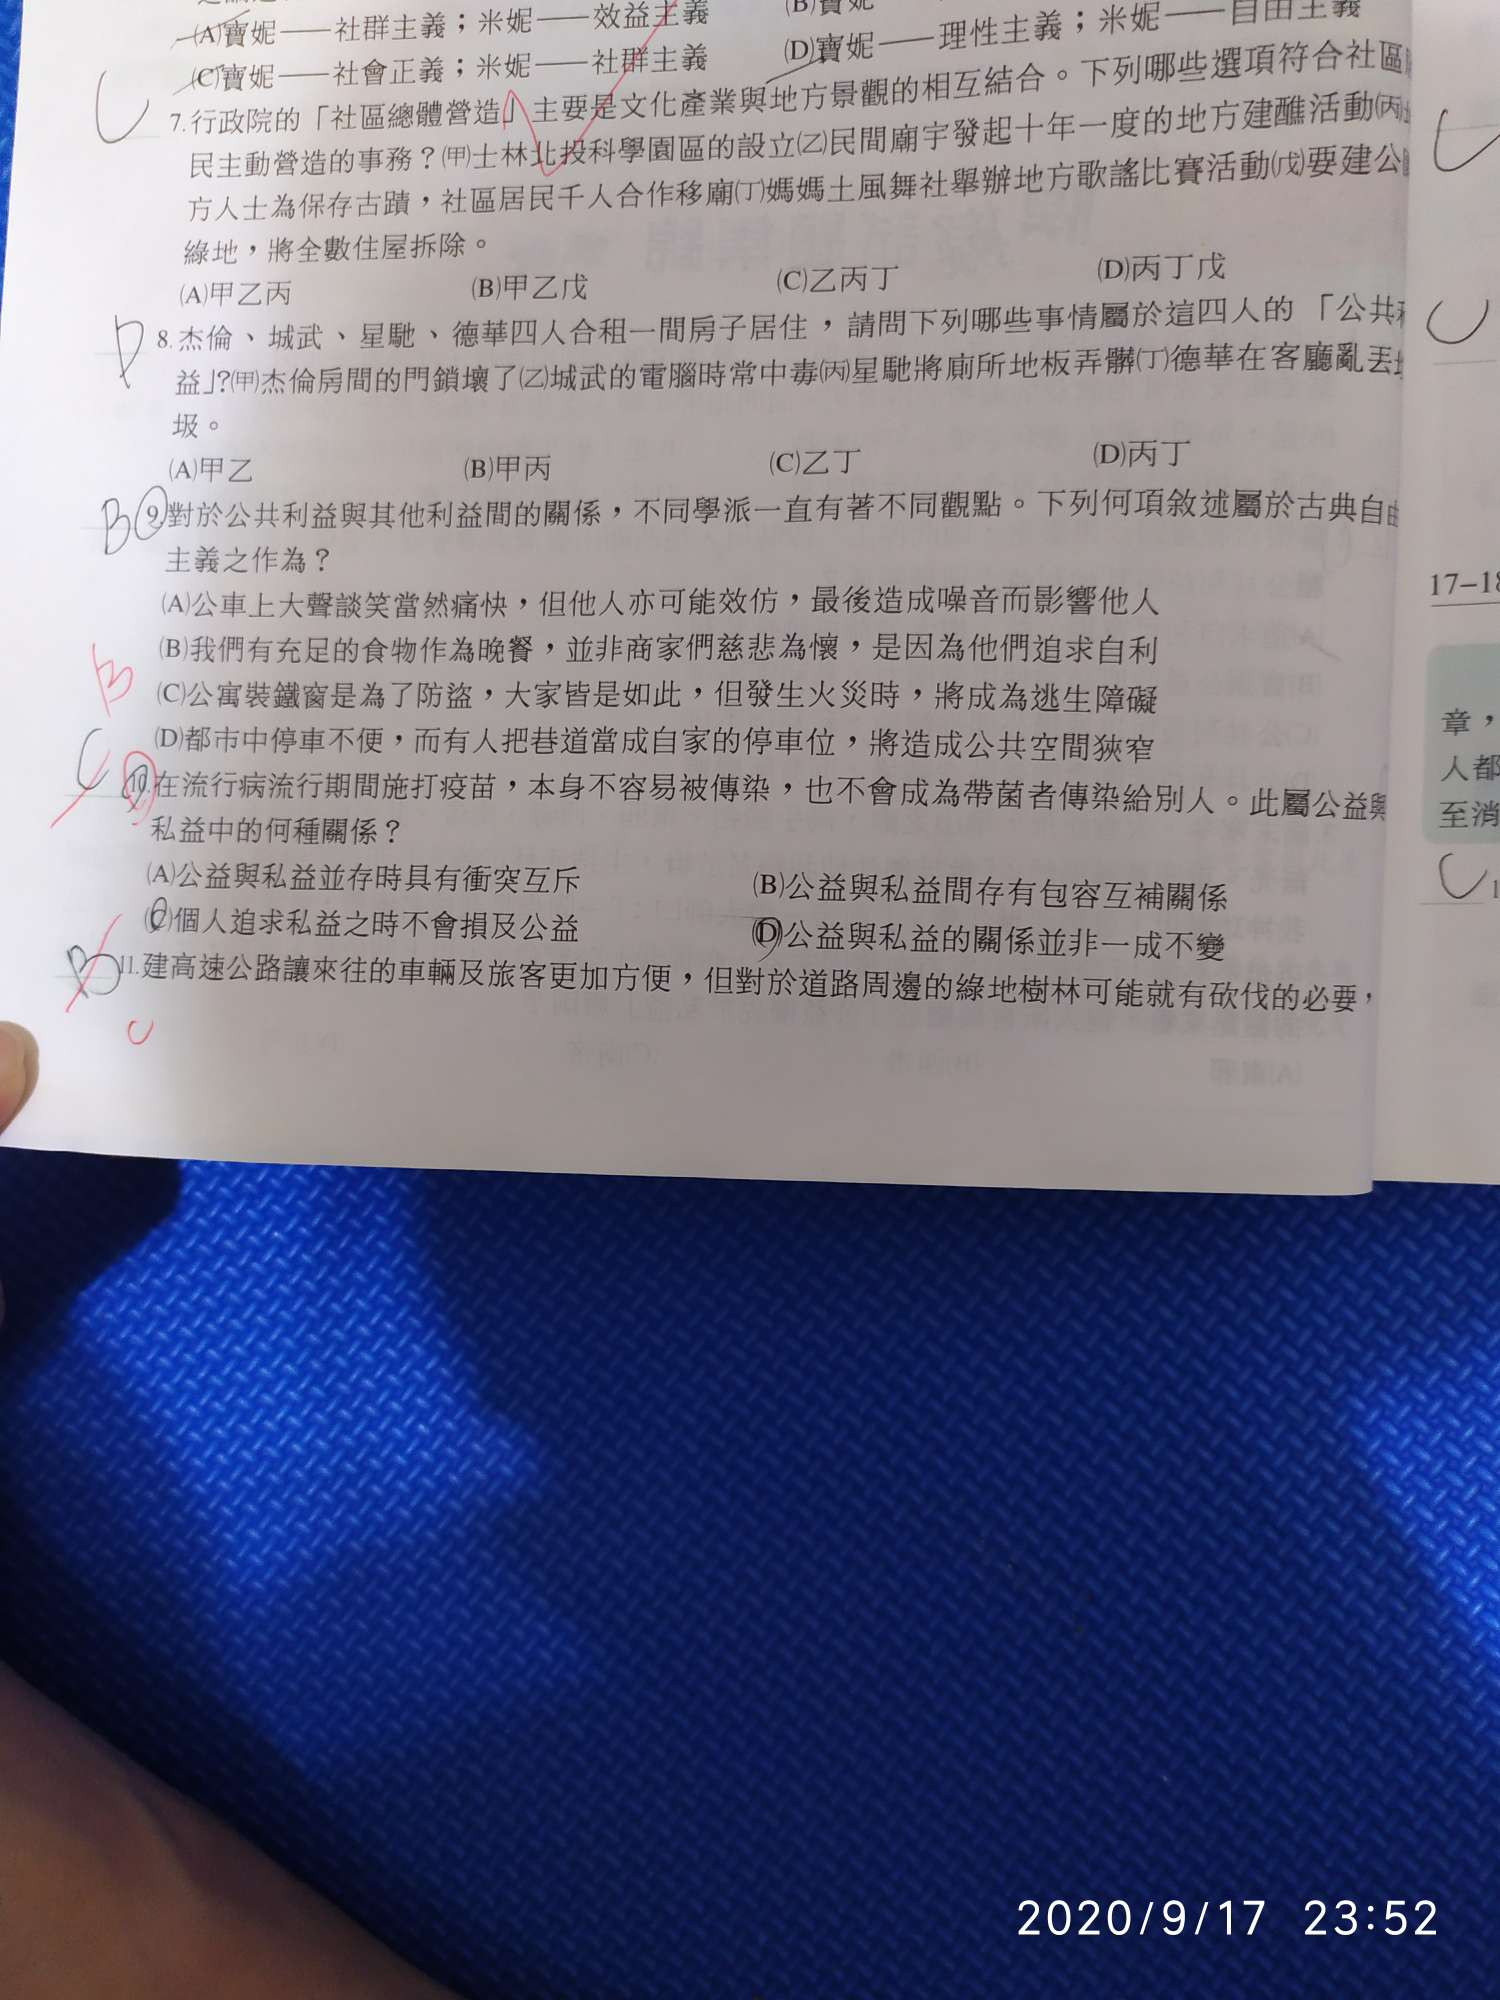 (A)寶妮——社群主義；米妮——效益主義
(B)寶妮
(C)寶妮——社會正義；米妮——社群主義
(D)寶妮——理性主義；米妮——自由主義
C
7.行政院的「社區總體營造」主要是文化產業與地方景觀的相互結合。下列哪些選項符合社區
民主動營造的事務？(甲)士林北投科學園區的設立(乙)民間廟宇發起十年一度的地方建醮活動(丙)
方人士為保存古蹟，社區居民千人合作移廟(丁)媽媽土風舞社舉辦地方歌謠比賽活動(戊)要建公
綠地，將全數住屋拆除。
(A)甲乙丙 (B)甲乙戊 (C)乙丙丁 (D)丙丁戊
D
8.杰倫、城武、星馳、德華四人合租一間房子居住，請問下列哪些事情屬於這四人的「公共
益」？(甲)杰倫房間的門鎖壞了(乙)城武的電腦時常中毒(丙)星馳將廁所地板弄髒(丁)德華在客廳亂丟
圾。
(A)甲乙 (B)甲丙 (C)乙丁 (D)丙丁
B
9.對於公共利益與其他利益間的關係，不同學派一直有著不同觀點。下列何項敘述屬於古典自由
主義之作為？
(A)公車上大聲談笑當然痛快，但他人亦可能效仿，最後造成噪音而影響他人
(B)我們有充足的食物作為晚餐，並非商家們慈悲為懷，是因為他們追求自利
(C)公寓裝鐵窗是為了防盜，大家皆是如此，但發生火災時，將成為逃生障礙
(D)都市中停車不便，而有人把巷道當成自家的停車位，將造成公共空間狹窄
B
C
10.在流行病流行期間施打疫苗，本身不容易被傳染，也不會成為帶菌者傳染給別人。此屬公益與
私益中的何種關係？
(A)公益與私益並存時具有衝突互斥 (B)公益與私益間存有包容互補關係
(C)個人追求私益之時不會損及公益 (D)公益與私益的關係並非一成不變
B
11.建高速公路讓來往的車輛及旅客更加方便，但對於道路周邊的綠地樹林可能就有砍伐的必要，
C
C
C
17-18
章，
人都
至消
C
2020/9/17 23:52